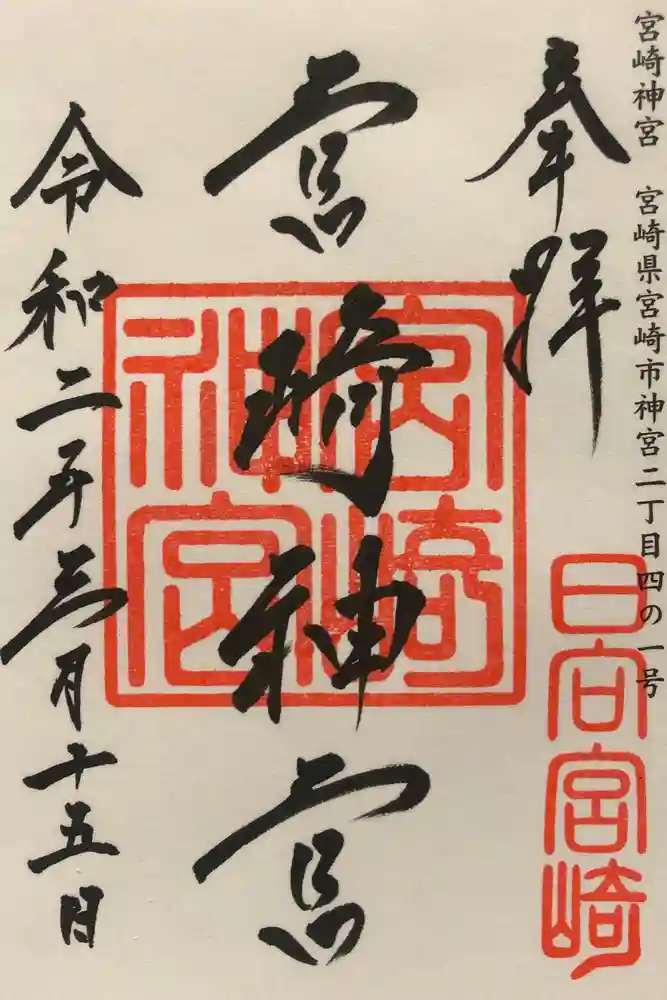 宮崎神宮 宮崎県宮崎市神宮二丁目四の一号
奉拝
日向宮崎
宮崎神宮
宮崎神宮
令和二年三月十五日